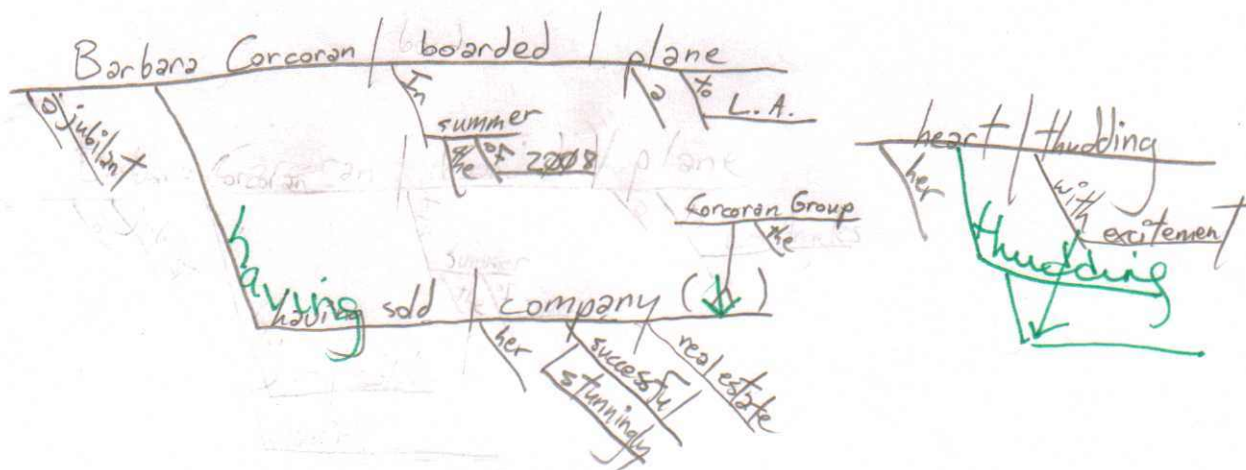 Barbara Corcoran boarded plane
a jubilant In a to L.A.
summer
the of 2008
Corcoran Group
the
having
having sold company ( )
her successful real estate
stunningly
heart thudding
her with excitement
thudding